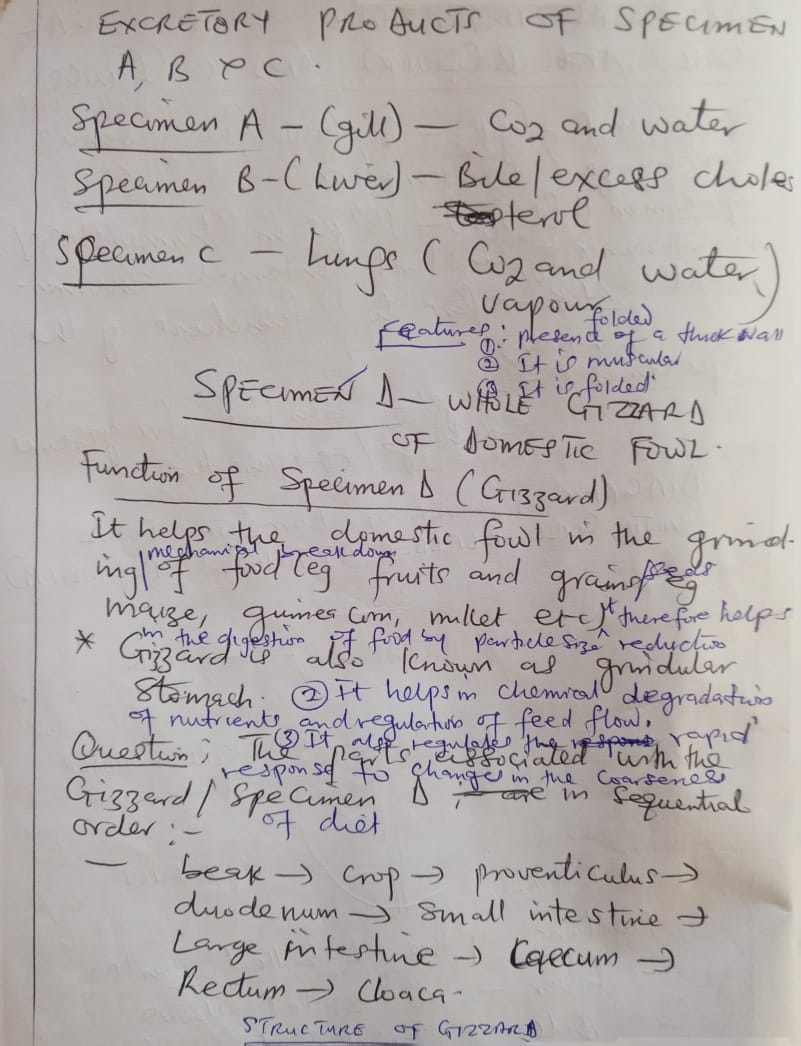 EXCRETORY PRODUCTS OF SPECIMEN
A, B & C.
Specimen A - (gill) - CO2 and water
Specimen B - (Liver) - Bile/excess choles
terol
Specimen C - Lungs (CO2 and water
vapour)
folded
Features: presend of a thick wall
① 
② It is muscular
③ It is folded
SPECIMEN D - WHOLE GIZZARD
OF DOMESTIC FOWL.
Function of Specimen D (Gizzard)
It helps the domestic fowl in the grind-
mechanical breakdown
ing/ of food (eg fruits and grains/seeds eg
maize, guinea corn, millet etc) It therefore helps
in the digestion of food by particle size reduction
* Gizzard is also known as grindular
Stomach. ② It helps in chemical degradation
of nutrients and regulation of feed flow.
③ It also regulates the rapid
Question; The parts associated with the
response to changes in the coarseness
Gizzard/Specimen D, are in sequential
of diet
order:-
- beak → crop → proventiculus →
duodenum → small intestine →
Large intestine → Caecum →
Rectum → Cloaca.
STRUCTURE OF GIZZARD